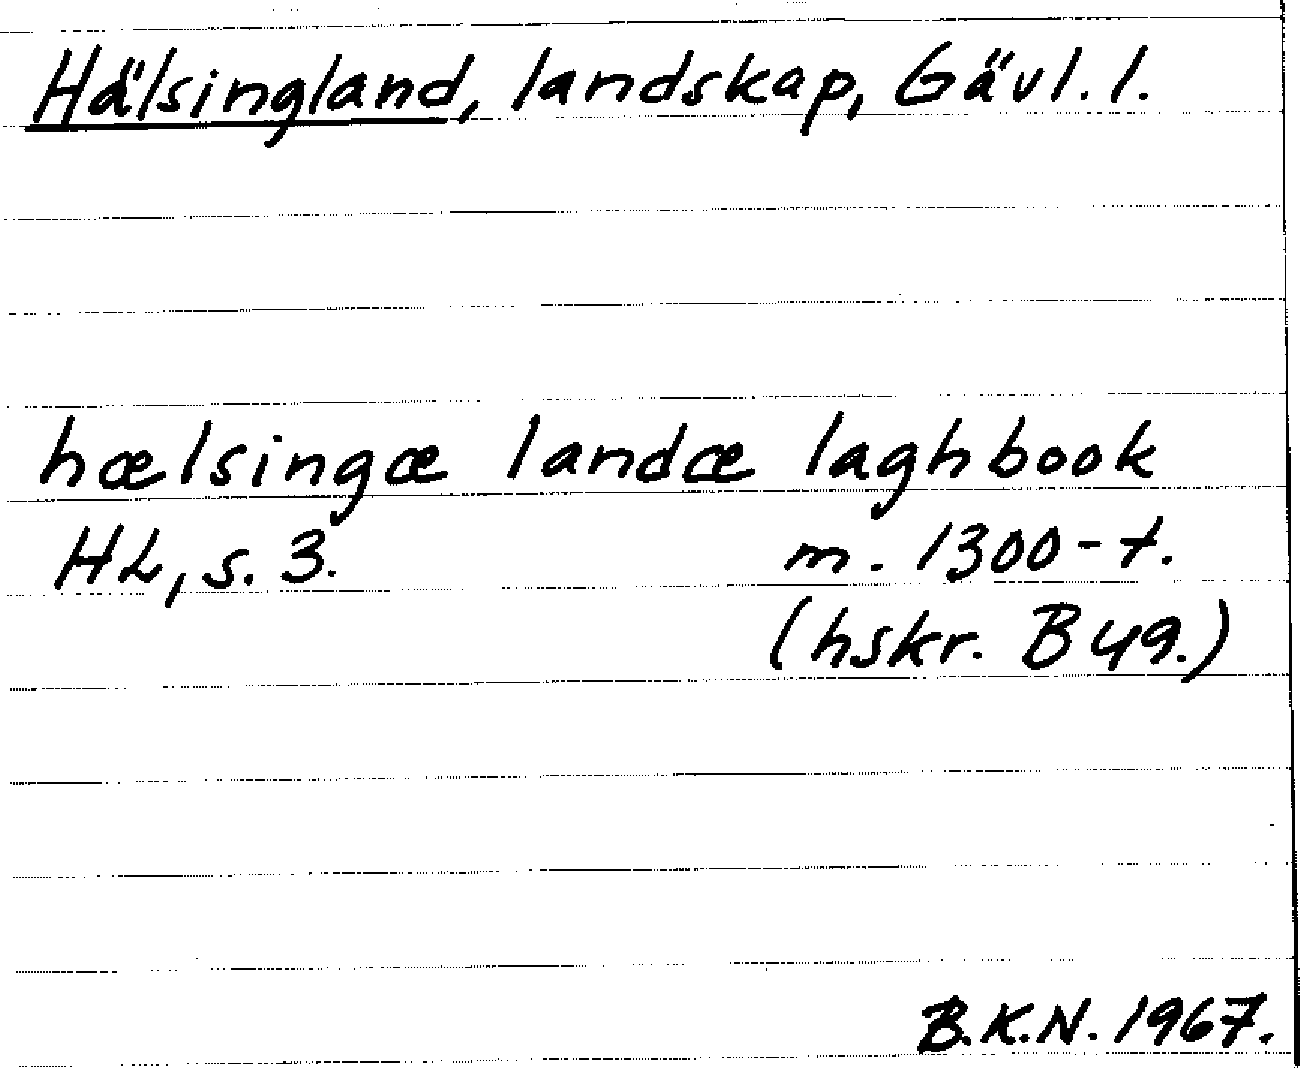 Hälsingland, landskap, Gävl. l.
hælsingæ landæ laghbook
HL, s. 3. m. 1300-t.
(hskr. B 49.)
B.K.N. 1967.